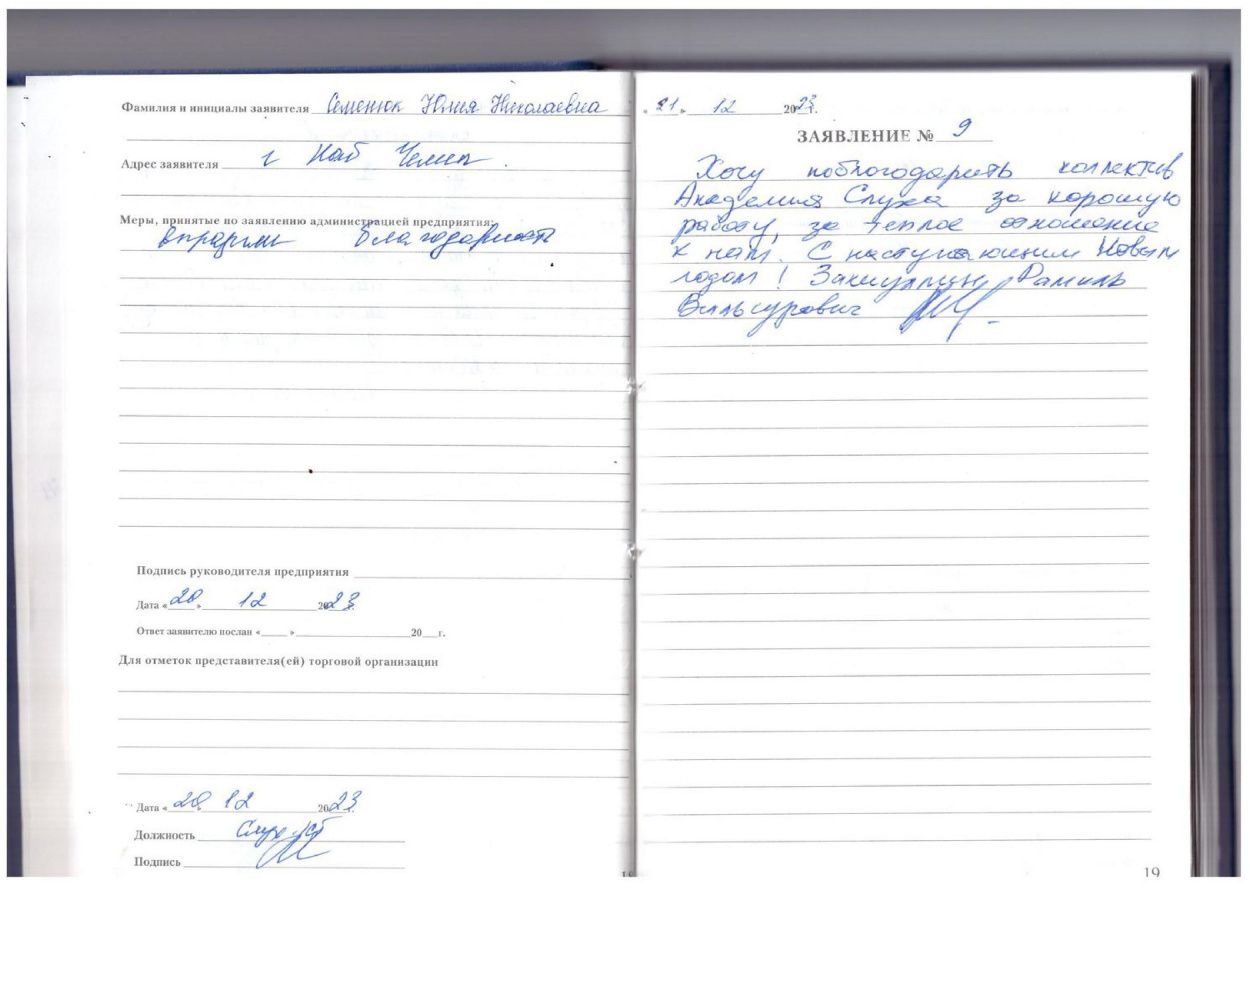 Фамилия и инициалы заявителя Семенюк Юлия Николаевна
Адрес заявителя г Наб Челны.
Меры, принятые по заявлению администрацией предприятия:
благодарность
Подпись руководителя предприятия
Дата «20» 12 2023г.
Ответ заявителю послан «___» ___ 20__г.
Для отметок представителя(ей) торговой организации
Дата «20» 12 2023г.
Должность
Подпись
«21» 12 2023г.
ЗАЯВЛЕНИЕ № 9
Хочу поблогодарить коллектив
Академия Слуха за хорошую
работу, за теплое отношение
к нам. С наступающим Новым
годом! Рамиль
Вильсурович
19